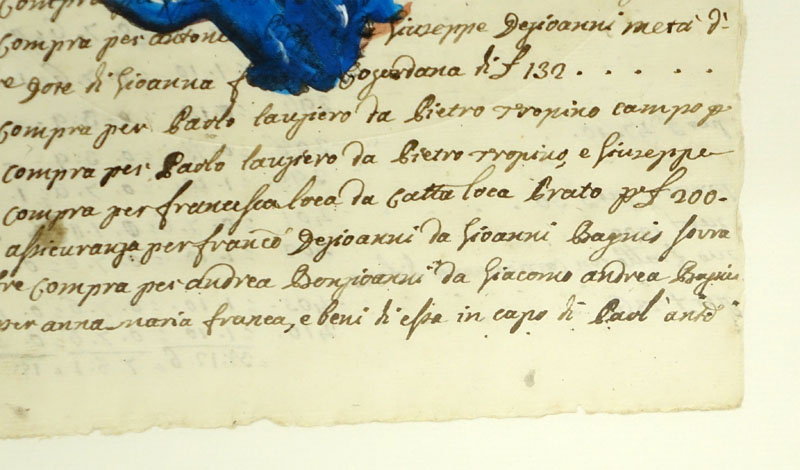 Compra per
Compra per Antono Giuseppe Dejioanni metà di
e Dote di Gioanna Cogordana di f 132 . . . . . .
Compra per Paolo laugiero da Pietro Tropino campo p
Compra per Paolo laugiero da Pietro Tropino, e Giuseppe
Compra per francesca loca da Catta loca Prato p f 200.
assicuranza per franco Dejioanni da Gioanni Bagnis sovra
re Compra per andrea Bonjioanni da Giacomo andrea Bagnis
per anna maria franca, e beni di essa in capo di Paol' anto